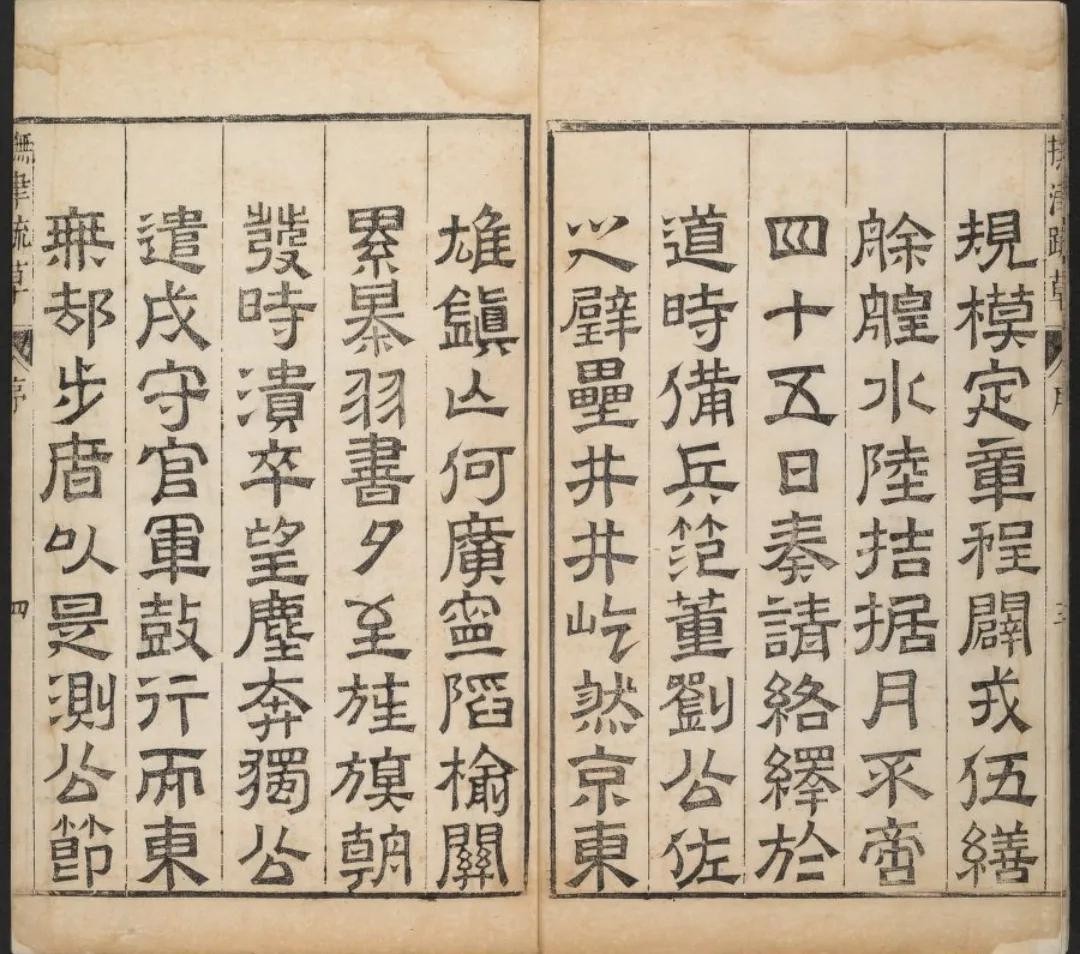 撫津疏草 序 三
規模定章程闢戎伍繕
艅艎水陸拮据月不啻
四十五日奏請絡繹於
道時備兵范董劉公佐
之壁壘井井屹然京東
雄鎮亾何廣寧陷榆關
累棊羽書夕至旌旗朝
發時潰卒望塵奔獨公
遣戍守官軍鼓行而東
無却步厝以是測公節
撫津疏草 序 四